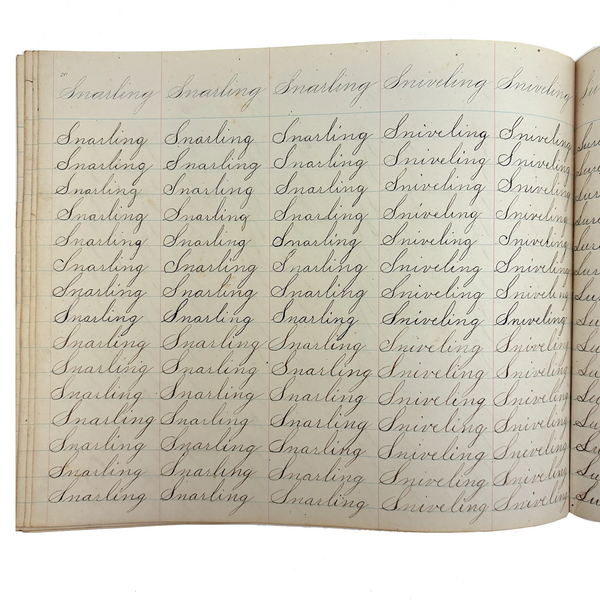 Snarling Snarling Snarling Sniveling Sniveling
Snarling Snarling Snarling Sniveling Sniveling
Snarling Snarling Snarling Sniveling Sniveling
Snarling Snarling Snarling Sniveling Sniveling
Snarling Snarling Snarling Sniveling Sniveling
Snarling Snarling Snarling Sniveling Sniveling
Snarling Snarling Snarling Sniveling Sniveling
Snarling Snarling Snarling Sniveling Sniveling
Snarling Snarling Snarling Sniveling Sniveling
Snarling Snarling Snarling Sniveling Sniveling
Snarling Snarling Snarling Sniveling Sniveling
Snarling Snarling Snarling Sniveling Sniveling
Snarling Snarling Snarling Sniveling Sniveling
Snarling Snarling Snarling Sniveling Sniveling
Snarling Snarling Snarling Sniveling Sniveling
Snarling Snarling Snarling Sniveling Sniveling